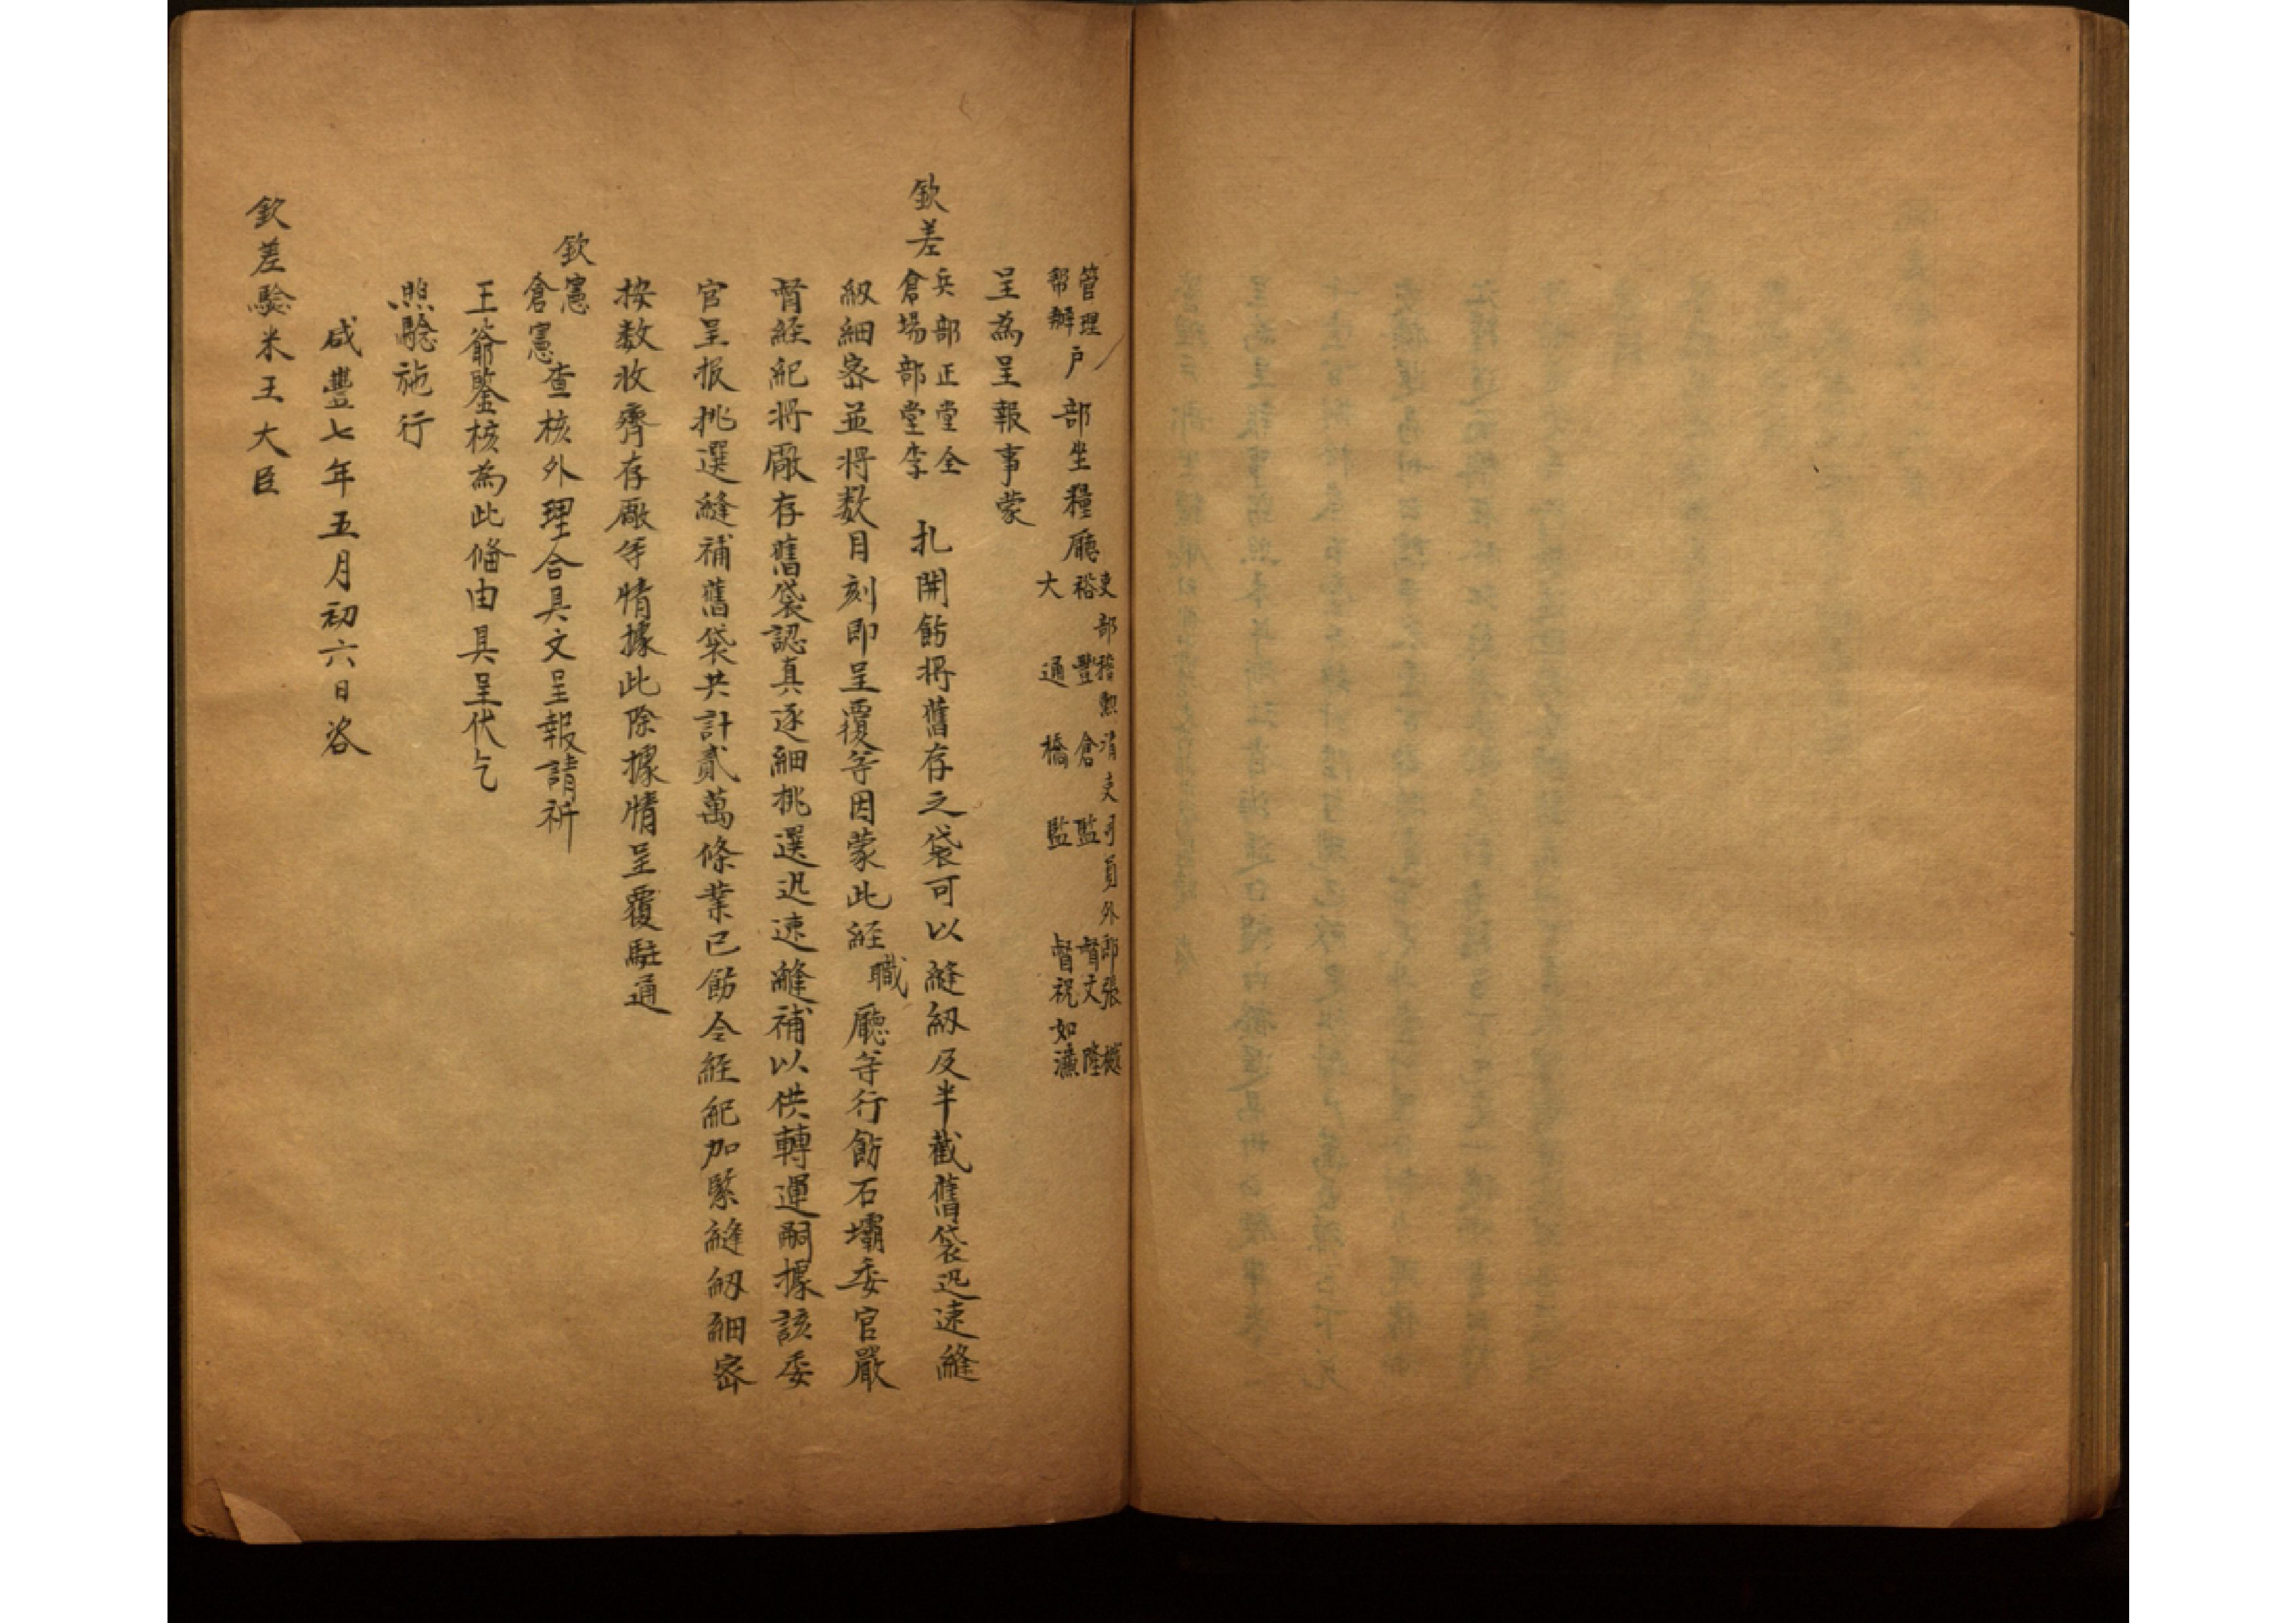 管理
幇辦
戶部坐糧廳
吏部稽勲清吏司員外郎張
裕豐倉監督文隆
大通橋監督祝如濂
呈為呈報事蒙
欽差
兵部正堂全
倉塲部堂李
扎開飭將舊存之袋可以縫紉及半截舊袋迅速縫
紉細密並將数目刻即呈覆等因蒙此経職廳等行飭石壩委官嚴
督経紀將廠存舊袋認真逐細挑選迅速縫補以供轉運嗣據該委
官呈报挑選縫補舊袋共計貳萬條業已飭令経紀加緊縫紉細密
按数收齊存廠等情據此除據情呈覆駐通
欽憲
倉憲
查核外理合具文呈報請祈
王爺鑒核為此偹由具呈伏乞
照驗施行
咸豐七年五月初六日咨
欽差驗米王大臣